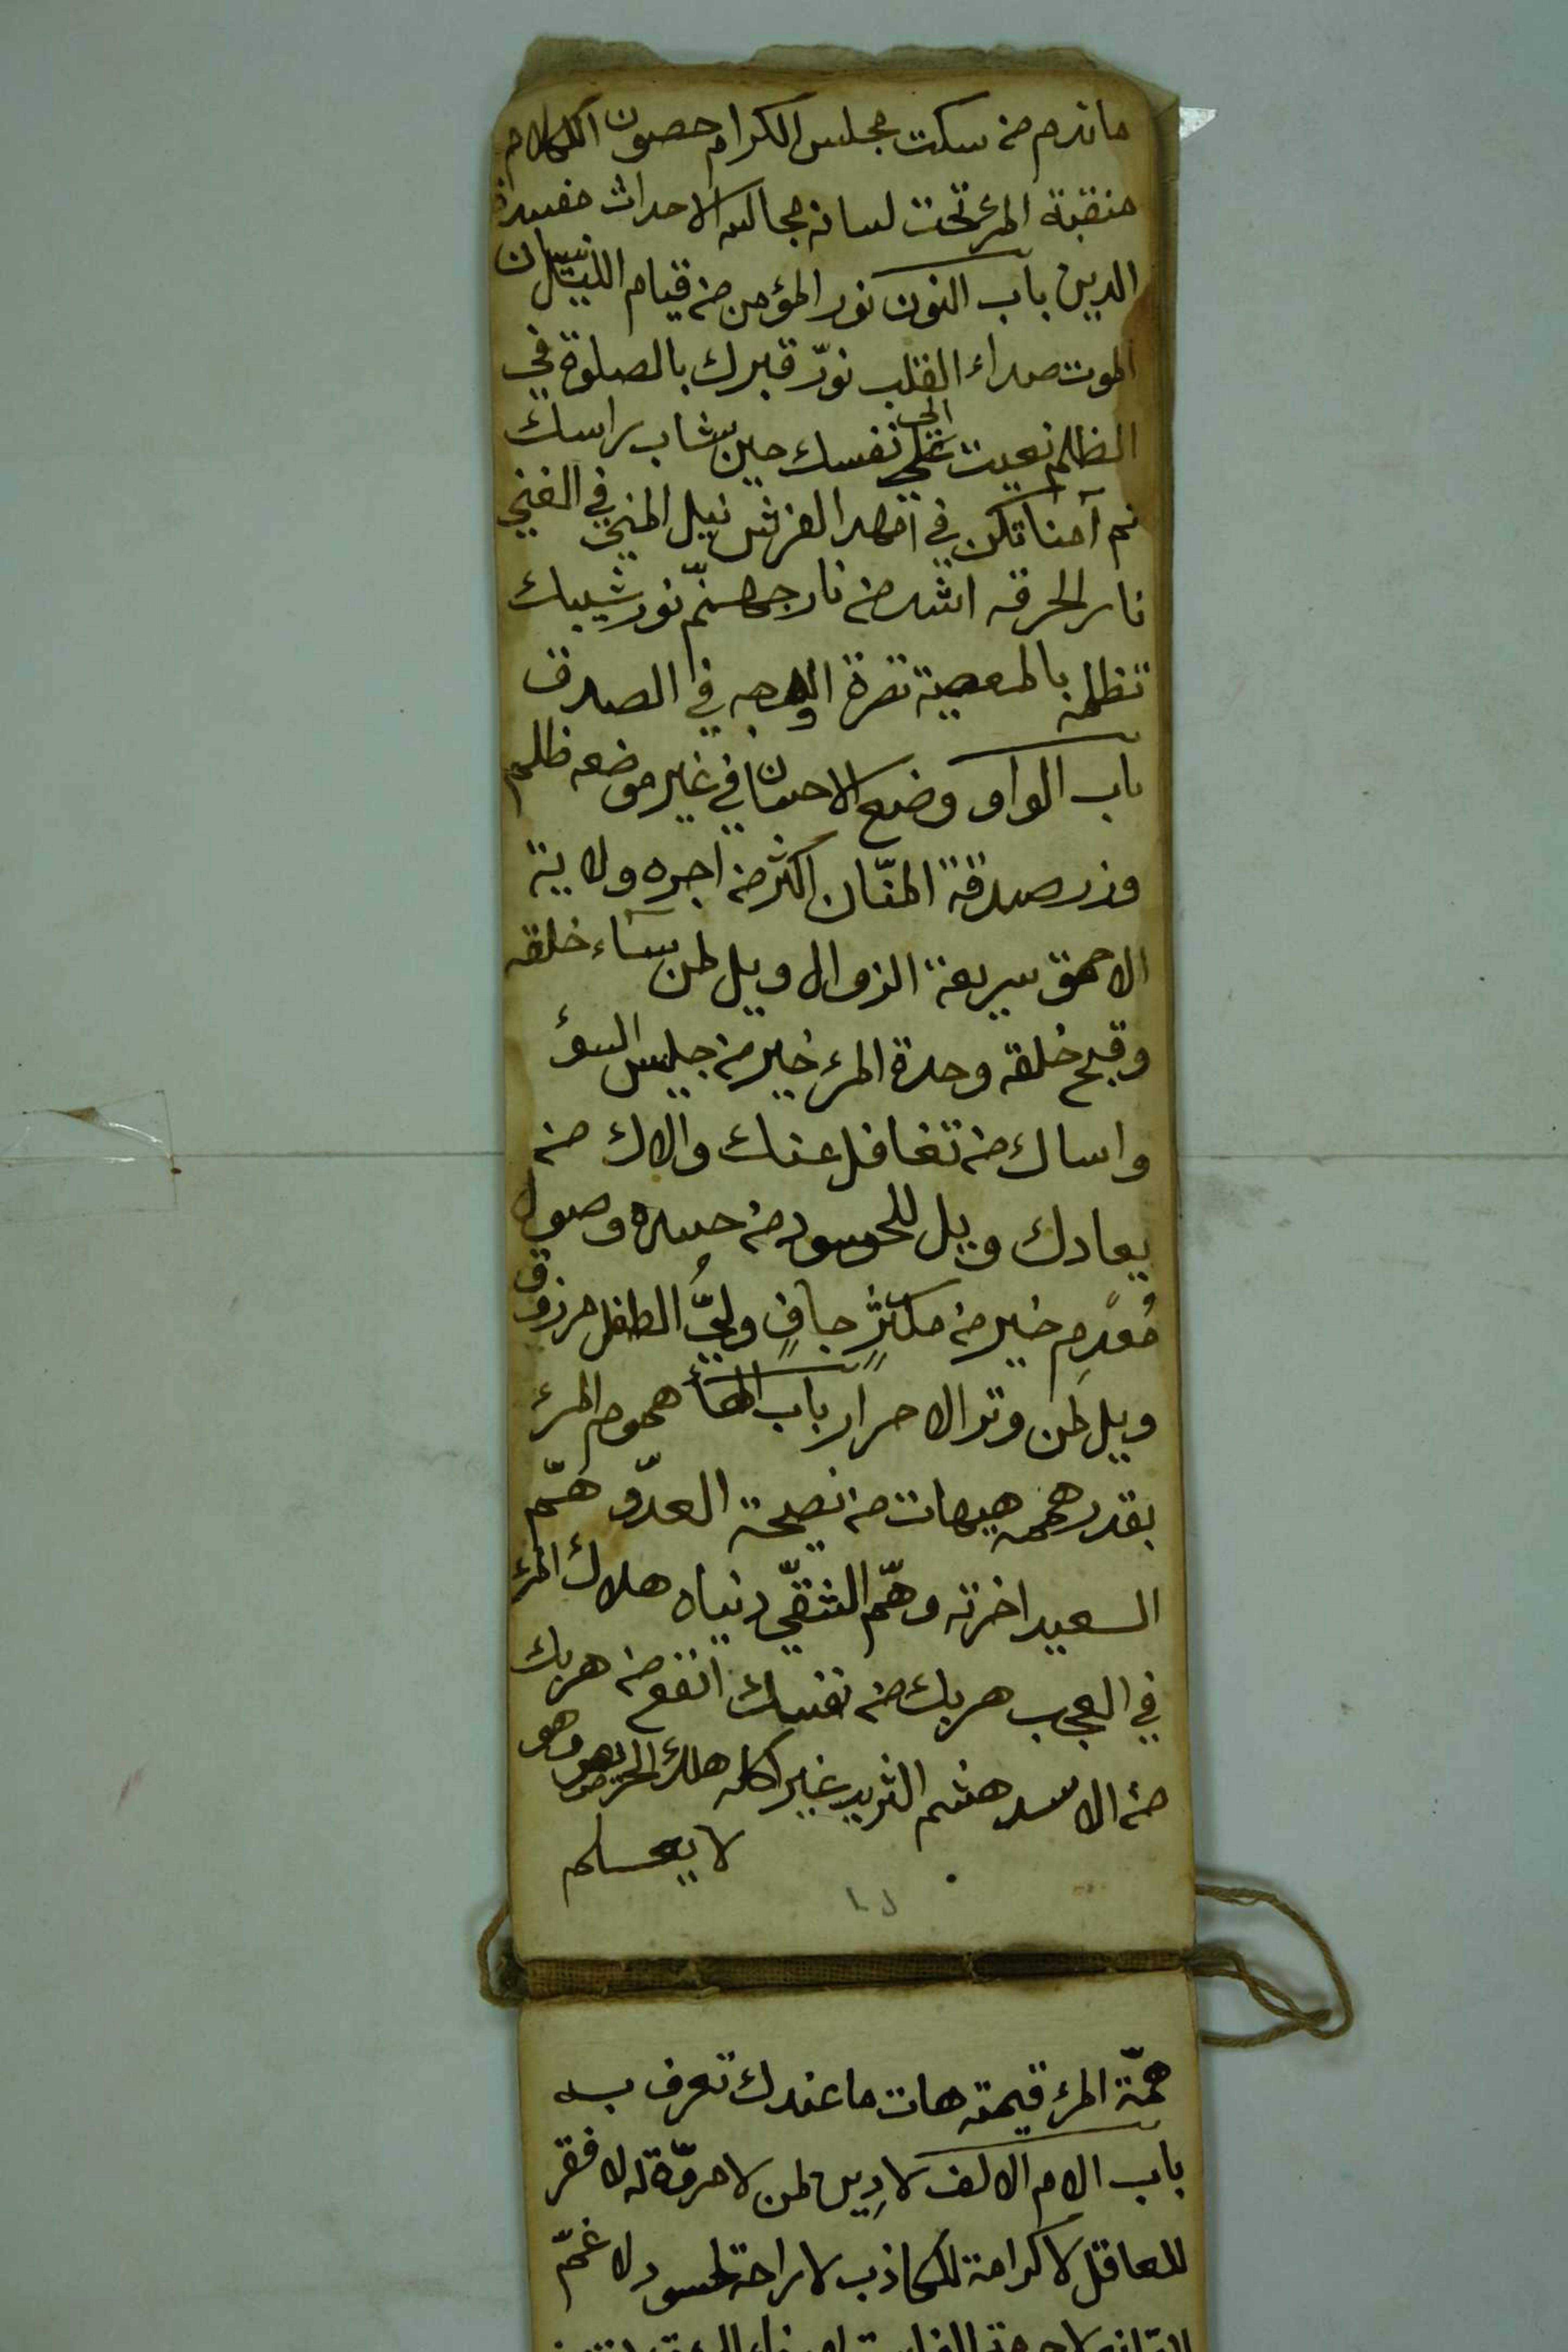 ماندم من سكت مجلس الكرام حصون الكلام
منقبة المرء تحت لسانه مجالسة الاحداث مفسدة
الدين باب النون نور المؤمن من قيام الليل نسيان
الموت صداء القلب نوّر قبرك بالصلوة في
الظلم نعيت الى نفسك حين شاب راسك
نم آمنا تكن في امهد الفرش نيل المنى في الغنى
نار الحرقه اشد من نار جهنّم نور شيبك
تظلمه بالمعصية نضرة الوجه في الصدق
باب الواو وضع الاحسان في غير موضعه ظلم
وزر صدقة المنّان اكثر من اجره ولاية
الاحمق سريعة الزوال ويل لمن ساء خلقه
وقبح خلقه وحدة المرء خير من جليس السوء
واساك من تغافل عنك والاك من
يعادك ويل للحسود من حسده وصول
مُعدِم خير من مكثرٍ جافٍ وليُّ الطفل مرزوق
ويل لمن وتر الاحرار باب الهاء هموم المرء
بقدر همه هيهات من نصيحة العدّو همّ
السعيد اخرته وهمّ الشقيّ دنياه هلاك المرء
في العجب هربك من نفسك انفع من هربك
من الاسد هشم الثريد غير اكله هلك الحريص وهو
لا يعلم
همّة المرء قيمته هات ما عندك تعرف به
باب الام الالف لا دِين لمن لا مروّة له لا فقر
للعاقل لا كرامة للكاذب لا راحة لحسود لا غمّ